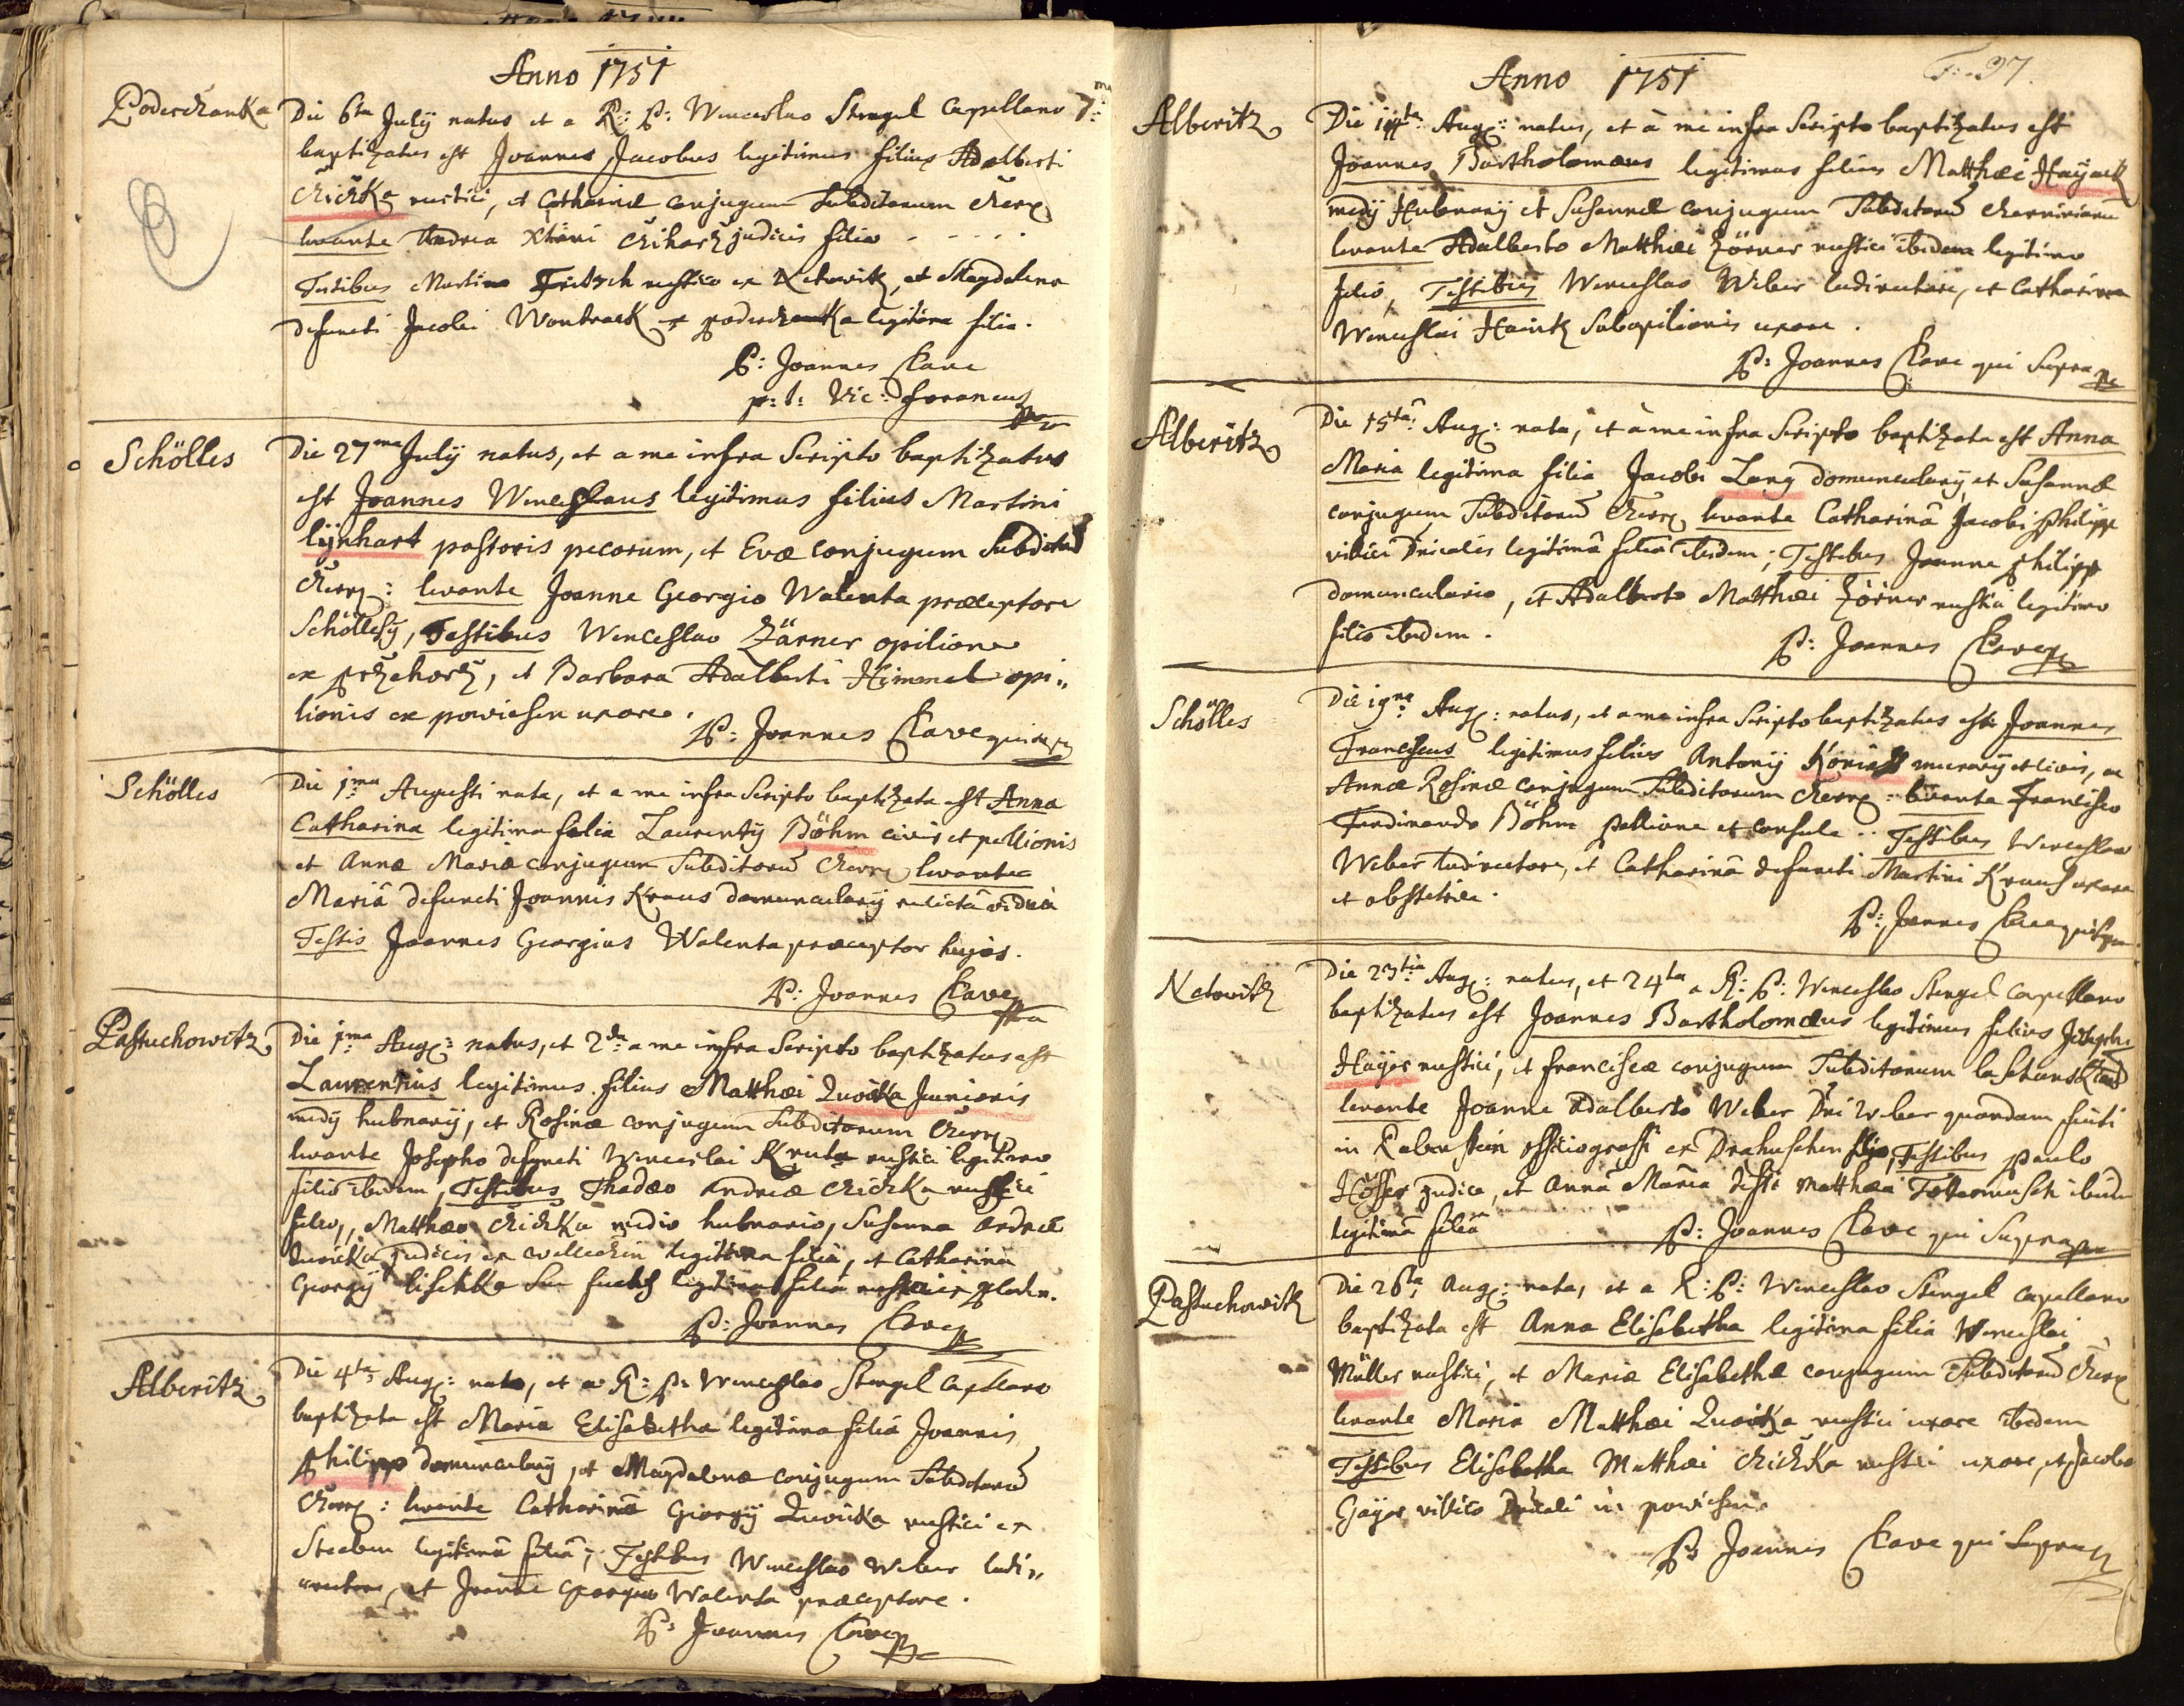 Anno 1751
Poderschanka
Die 6ta July natus et a R: P: Wenceslao Stengel Capellano 7ma
baptizatus est Joannes Jacobus legitimus filius Adalberti
rustici, et Catharinæ conjugum Subditorum
levante Andrea judicis filio
Testibus Martino Fritsch rustico ex Netowitz, et Magdalena
defuncti Jacobi Wontrack ex poderschanka legitima filia.
P: Joannes Clave
p: t: Vic: foraneus
Schölles
Die 27ma July natus, et a me infra Scripto baptizatus
est Joannes Wenceslaus legitimus filius Martini
lijnhart pastoris pecorum, et Evæ conjugum
levante Joanne Georgio Walenta præceptore
Testibus Wenceslao Zärner opilione
ex et Barbara Adalberti Himmel opi„
lionis ex powiesen uxore.
P: Joannes Clave
Schölles
Die 1ma Augusti nata, et a me infra Scripto baptizata est Anna
Catharina legitima filia Laurentij Böhm civis et pellionis
et Annæ Mariæ conjugum levante
Mariâ defuncti Joannis Kraus domuncularij relictâ viduâ
Testis Joannes Georgius Walenta præceptor hujas.
P: Joannes Clave
Pastuchowitz
Die 1ma Aug: natus, et 2da a me infra Scripto baptizatus est
Laurentius legitimus filius Matthæi Zwicka Junioris
medij hubnarij, et Rosinæ conjugum Subditorum
levante Josepho defuncti Wenceslai rustici legitimo
filio ibidem, Testibus Thadæo Andreæ rustici
filio, Matthæo medio hubnario, Susanna Andreæ
judicis ex legitima filia, et Catharina
Georgij legitima filia
P: Joannes Clave
Alberitz
Die 4ta Aug: nata, et a R: P: Wenceslao Stengel Capellano
baptizata est Maria Elisabetha legitima filia Joannis
Philipp domuncularij, et Magdalenæ conjugum
levante Catharinâ Georgij rustici ex
legitimâ filiâ, Testibus Wenceslao Weber ludi„
rectore, et Joanne Georgio Walenta præceptore.
P: Joannes Clave
Anno 1751
97.
Alberitz
Die Aug: natus, et à me infra Scripto baptizatus est
Joannes Bartholomæus legitimus filius Matthæi Hayack
medij Hubnarij et Susannæ conjugum
levante Adalberto Matthæi Zörner rustici ibidem legitimo
filio, Testibus Wenceslao Weber ludirectore, et Catharina
Wenceslai Hainz Subopilionis uxore.
P: Joannes Clave qui Supra
Alberitz
Die 15ta Aug: nata, et à me infra Scripto baptizata est Anna
Maria legitima filia Jacobi Lang domuncularij et Susannæ
conjugum levante Catharinâ Jacobi Philipp
villici Dnicalis legitimâ filiâ ibidem; Testibus Joanne Philipp
domunculario, et Adalberto Matthæi Zörner rustici legitimo
filio ibidem.
P: Joannes Clave
Schölles
Die 19na Aug: natus, et a me infra Scripto baptizatus est Joannes
Franciscus legitimus filius Antonij murarij et civis, ac
Annæ Rosinæ conjugum Subditorum levante Francisco
Ferdinando Böhm pellione et consule. Testibus Wenceslao
Weber ludirectore, et Catharinâ defuncti Martini Kraus uxore
et obstetrice.
P: Joannes Clave
Netowitz
Die 23tia Aug: natus, et 24ta a R: P: Wenceslao Stengel Capellano
baptizatus est Joannes Bartholomæus legitimus filius Josephi
Hayer rustici, et Franciscæ conjugum Subditorum
levante Joanne Adalberto Weber Dni Weber quondam
in Rabenstein ex Testibus Paulo
judice, et Annâ Mariâ Matthæi ibidem
legitimâ filiâ
P: Joannes Clave qui Supra
Pastuchowitz
Die 26ta Aug: nata, et a R: P: Wenceslao Stengel Capellano
baptizata est Anna Elisabetha legitima filia Wenceslai
Müller rustici, et Mariæ Elisabethæ conjugum
levante Maria Matthæi Zwicka rustici uxore ibidem
Testibus Elisabetha Matthæi rustici uxore, et Jacobo
Gayer villico Dnicali in powiesen
P: Joannes Clave qui Supra